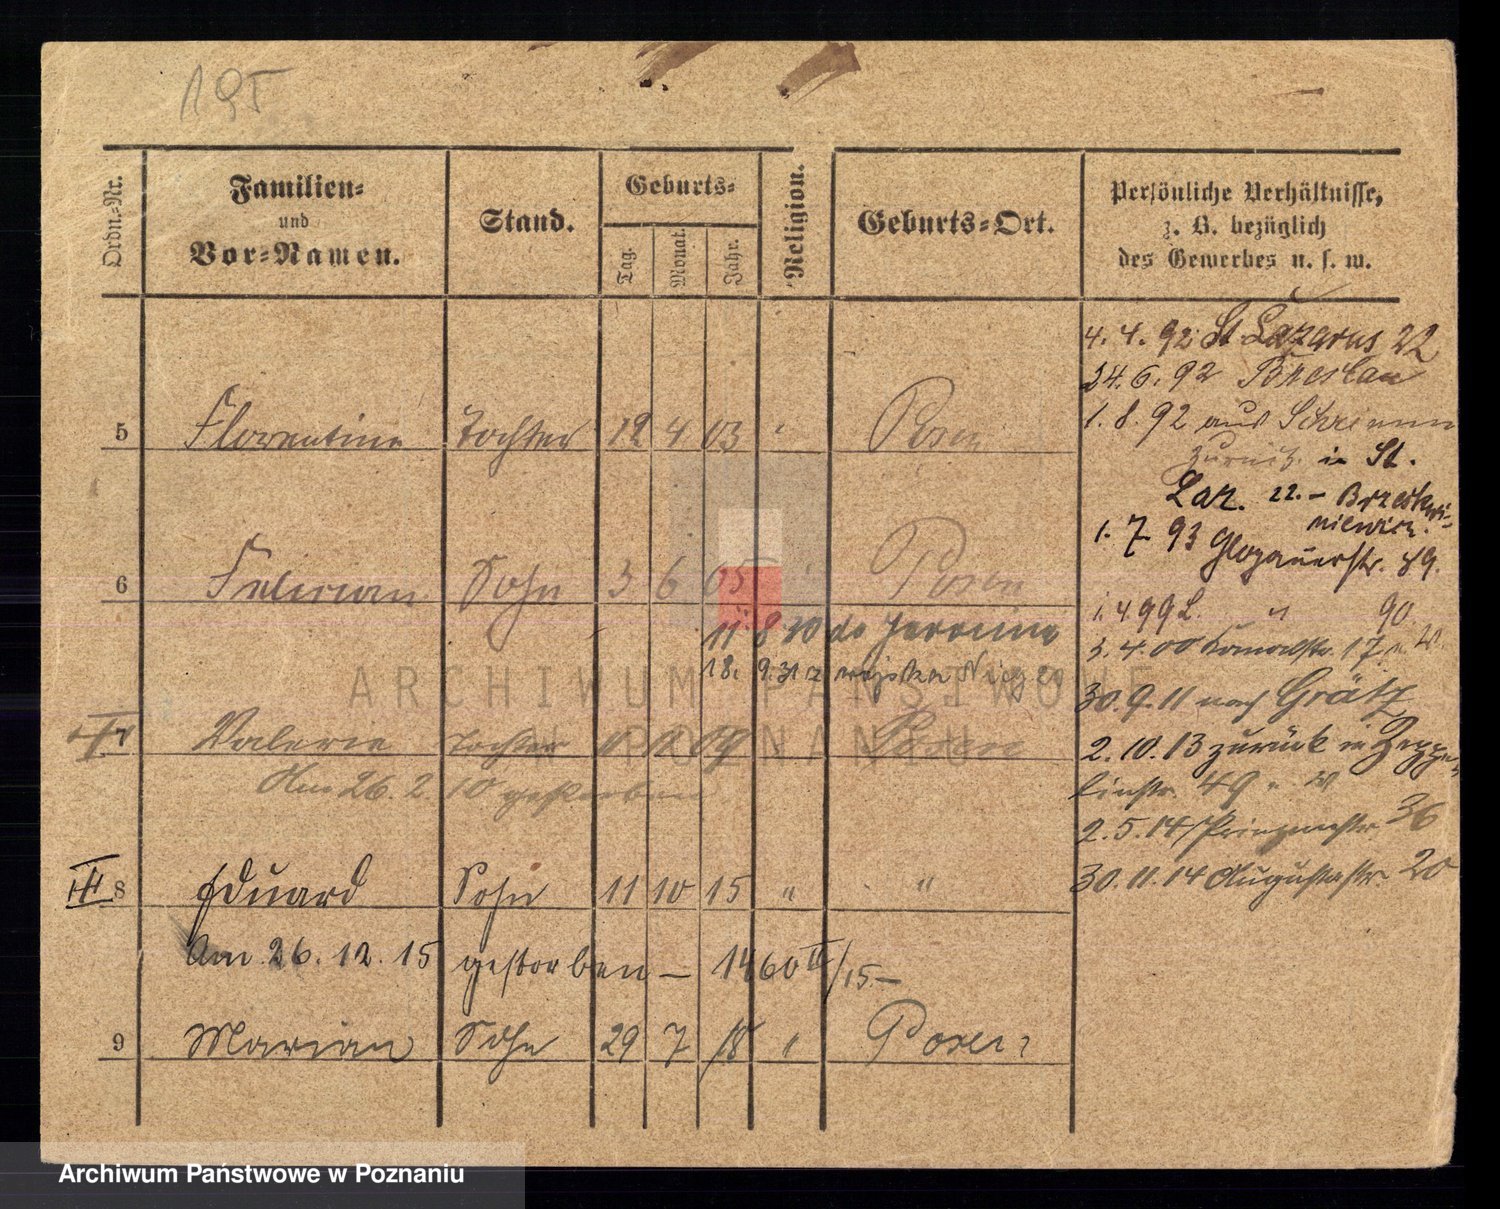 195
Ordn.-Nr.
Familien-
und
Vor-Namen.
Stand.
Geburts-
Tag.
Monat.
Jahr.
Religion.
Geburts-Ort.
Persönliche Verhältnisse,
z. B. bezüglich
des Gewerbes u. s. w.
5 Florentine Tochter 12 4 03 " Posen
6 Felician Sohn 3 6 05 " Posen
11 8 10
18. 9. 31 z
7 Valerie Tochter 09 Posen
Am 26. 2. 10 gestorben
III 8 Eduard Sohn 11 10 15 " "
Am 26. 12. 15 gestorben — 1460 IV/15 —
9 Marian Sohn 29 7 18 " Posen
4. 4. 92 St Lazarus 22
24. 6. 92 Breslau
1. 8. 92 aus Schrimm
zurück in St.
Laz. 22. –
1. 7 93 Glogauerstr. 89.
1. 4 99 L. " 90
3. 4. 00 Kanalstr. 17
30. 9. 11 nach Grätz
2. 10. 13 zurück in Zeppe-
linstr. 49 n. W
2. 5. 14 Prinzenstr. 36
30. 11. 14 Augustastr. 20
ARCHIWUM PAŃSTWOWE
W POZNANIU
Archiwum Państwowe w Poznaniu